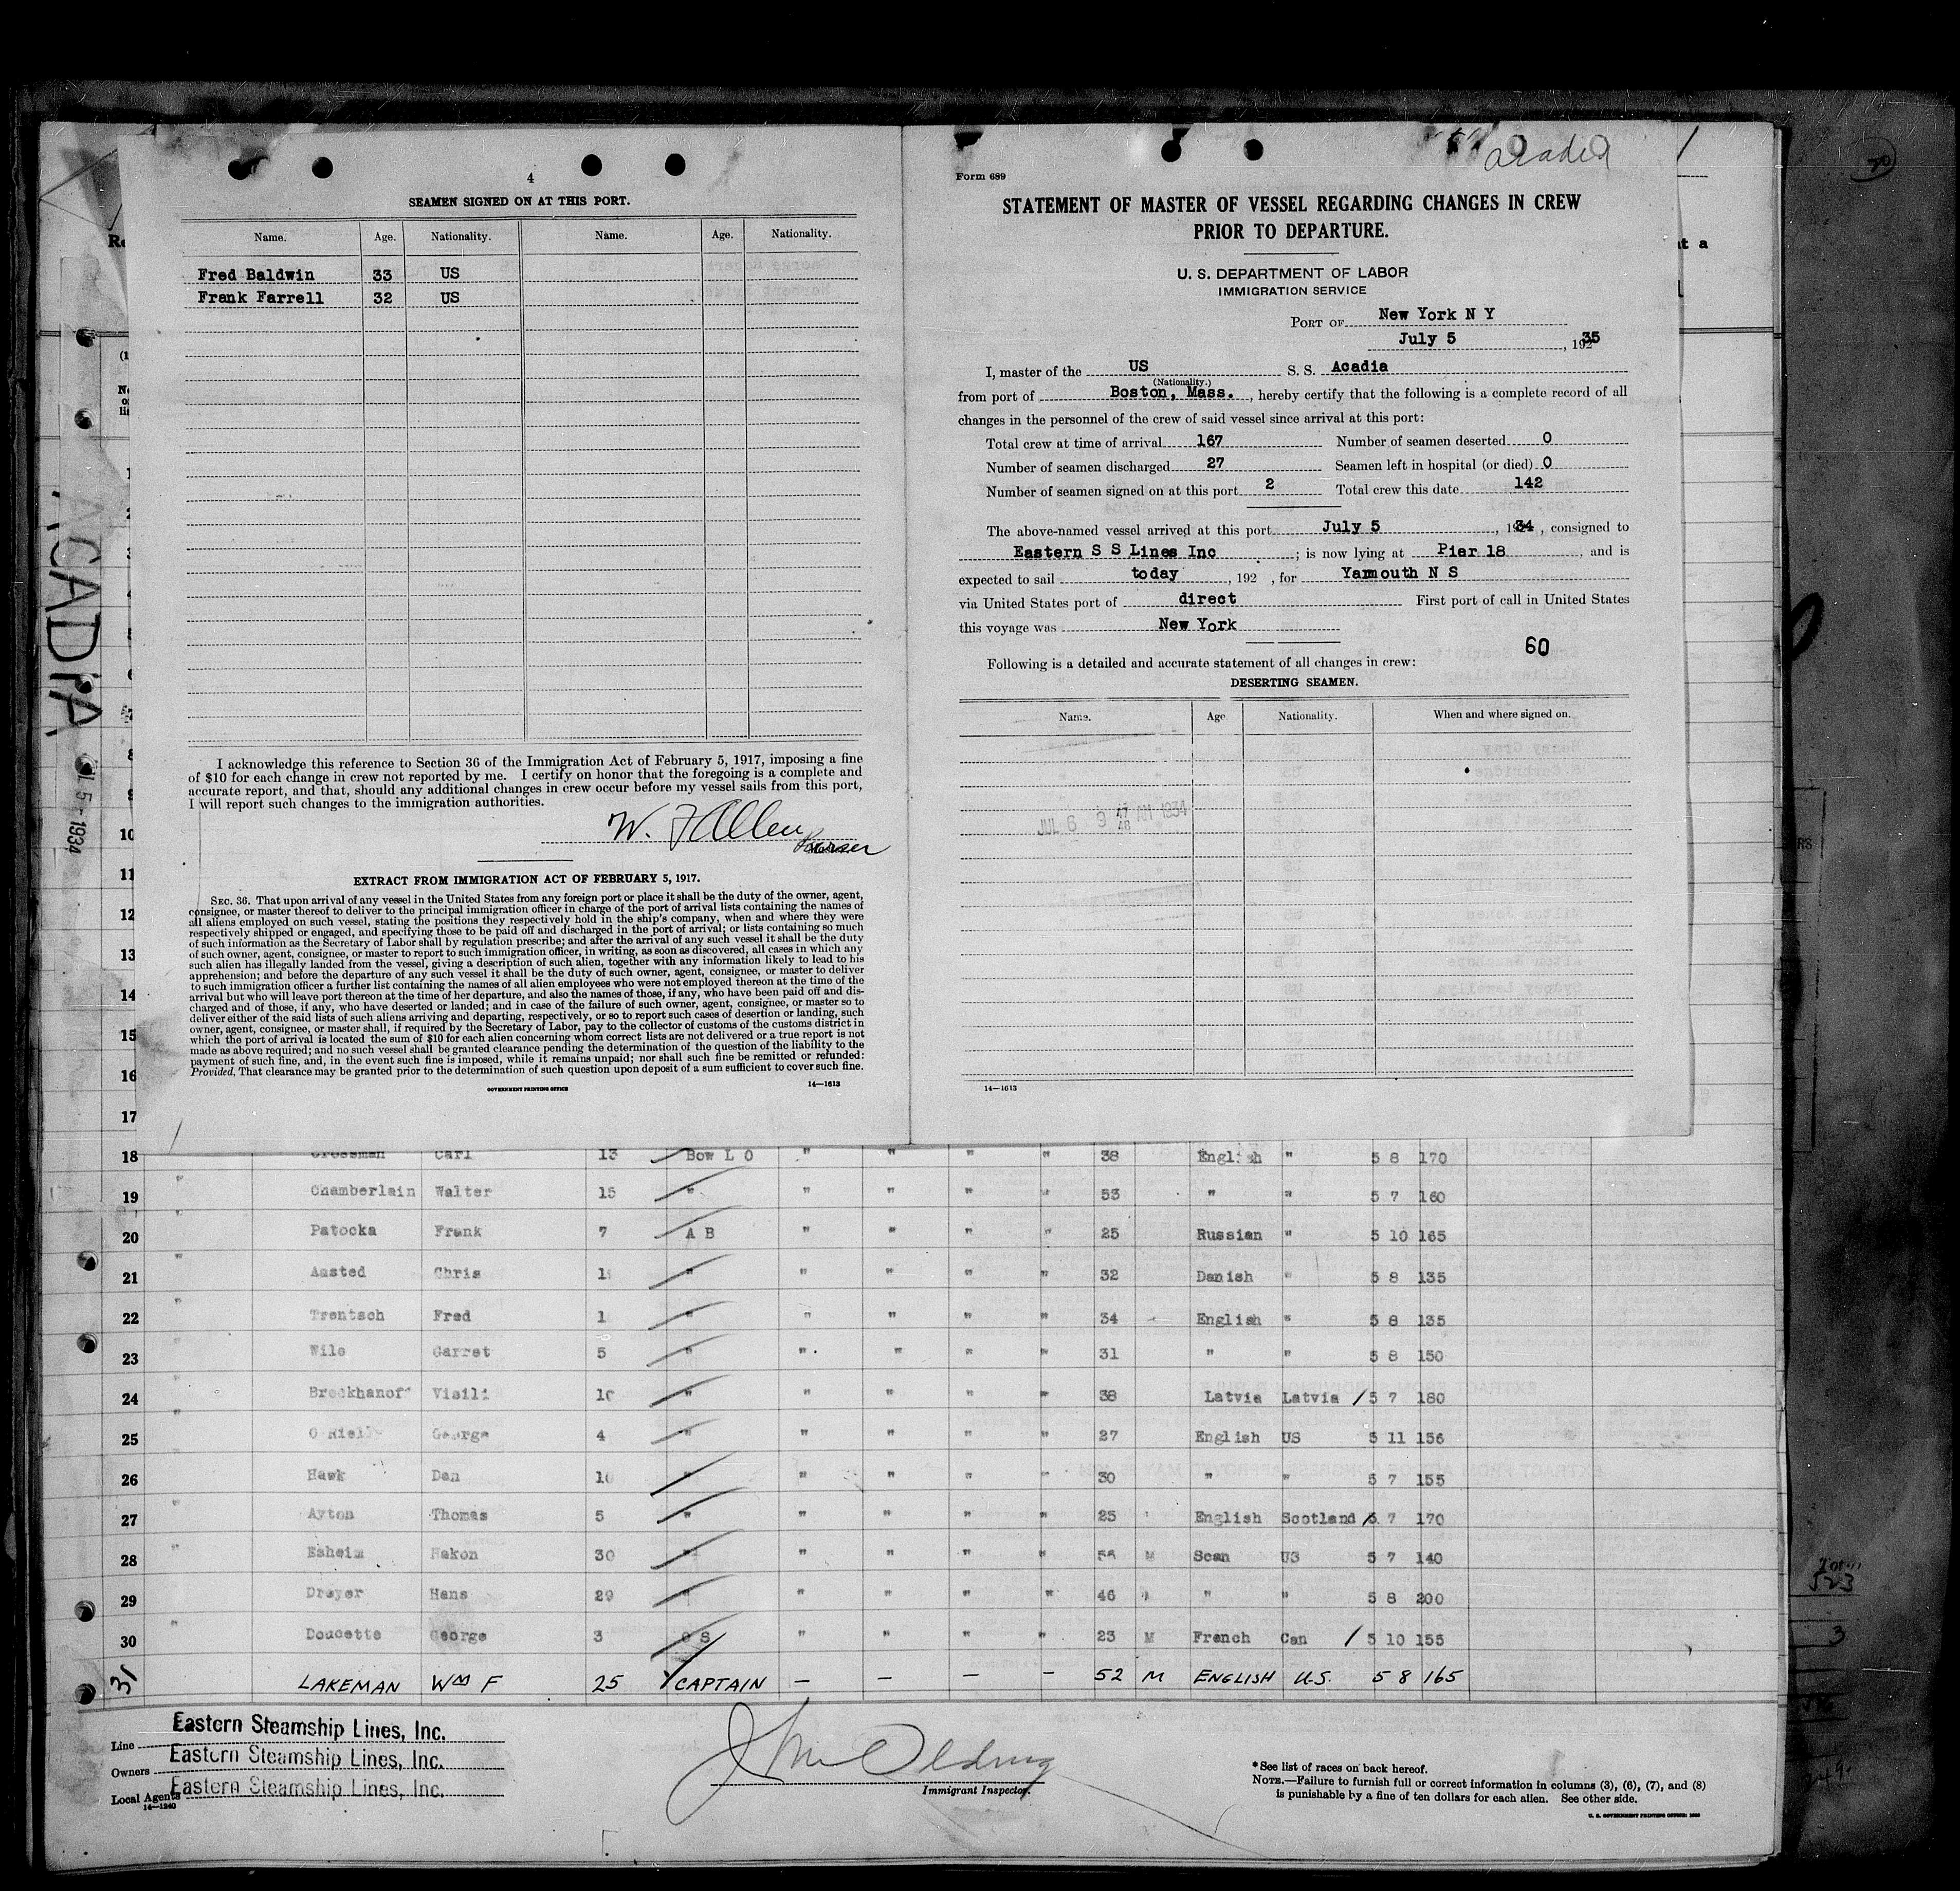 4
SEAMEN SIGNED ON AT THIS PORT.
Name. Age. Nationality. Name. Age. Nationality.
Fred Baldwin 33 US
Frank Farrell 32 US
I acknowledge this reference to Section 36 of the Immigration Act of February 5, 1917, imposing a fine
of $10 for each change in crew not reported by me. I certify on honor that the foregoing is a complete and
accurate report, and that, should any additional changes in crew occur before my vessel sails from this port,
I will report such changes to the immigration authorities.
W. F Allen
Purser
EXTRACT FROM IMMIGRATION ACT OF FEBRUARY 5, 1917.
SEC. 36. That upon arrival of any vessel in the United States from any foreign port or place it shall be the duty of the owner, agent,
consignee, or master thereof to deliver to the principal immigration officer in charge of the port of arrival lists containing the names of
all aliens employed on such vessel, stating the positions they respectively hold in the ship's company, when and where they were
respectively shipped or engaged, and specifying those to be paid off and discharged in the port of arrival; or lists containing so much
of such information as the Secretary of Labor shall by regulation prescribe; and after the arrival of any such vessel it shall be the duty
of such owner, agent, consignee, or master to report to such immigration officer, in writing, as soon as discovered, all cases in which any
such alien has illegally landed from the vessel, giving a description of such alien, together with any information likely to lead to his
apprehension; and before the departure of any such vessel it shall be the duty of such owner, agent, consignee, or master to deliver
to such immigration officer a further list containing the names of all alien employees who were not employed thereon at the time of the
arrival but who will leave port thereon at the time of her departure, and also the names of those, if any, who have been paid off and dis-
charged and of those, if any, who have deserted or landed; and in case of the failure of such owner, agent, consignee, or master so to
deliver either of the said lists of such aliens arriving and departing, respectively, or so to report such cases of desertion or landing, such
owner, agent, consignee, or master shall, if required by the Secretary of Labor, pay to the collector of customs of the customs district in
which the port of arrival is located the sum of $10 for each alien concerning whom correct lists are not delivered or a true report is not
made as above required; and no such vessel shall be granted clearance pending the determination of the question of the liability to the
payment of such fine, and, in the event such fine is imposed, while it remains unpaid; nor shall such fine be remitted or refunded:
Provided, That clearance may be granted prior to the determination of such question upon deposit of a sum sufficient to cover such fine.
GOVERNMENT PRINTING OFFICE 14—1613
acadia
Form 689
STATEMENT OF MASTER OF VESSEL REGARDING CHANGES IN CREW
PRIOR TO DEPARTURE.
U. S. DEPARTMENT OF LABOR
IMMIGRATION SERVICE
PORT OF New York N Y
July 5, 19235
I, master of the US S. S. Acadia
(Nationality.)
from port of Boston, Mass., hereby certify that the following is a complete record of all
changes in the personnel of the crew of said vessel since arrival at this port:
Total crew at time of arrival 167 Number of seamen deserted 0
Number of seamen discharged 27 Seamen left in hospital (or died) 0
Number of seamen signed on at this port 2 Total crew this date 142
The above-named vessel arrived at this port July 5, 1934, consigned to
Eastern S S Lines Inc; is now lying at Pier 18, and is
expected to sail today, 192 , for Yarmouth N S
via United States port of direct First port of call in United States
this voyage was New York
60
Following is a detailed and accurate statement of all changes in crew:
DESERTING SEAMEN.
Name. Age Nationality. When and where signed on.
JUL 6 9 47 48 AM 1934
14—1613
ACADIA
5 - 1934
10
11
12
13
14
15
16
17
18 Grossman Carl 13 Bow L O " " " " 38 English " 5 8 170
19 " Chamberlain Walter 15 " " " " " 53 " " 5 7 160
20 " Patocka Frank 7 A B " " " " 25 Russian " 5 10 165
21 " Aasted Chris 1 " " " " " 32 Danish " 5 8 135
22 " Trentsch Fred 1 " " " " " 34 English " 5 8 135
23 " Wile Garret 5 " " " " " 31 " " 5 8 150
24 " Breckhanoff Visili 10 " " " " " 38 Latvia Latvia / 5 7 180
25 " O Rielly George 4 " " " " " 27 English US 5 11 156
26 " Hawk Dan 10 " " " " " 30 " " 5 7 155
27 " Ayton Thomas 5 " " " " " 25 English Scotland / 5 7 170
28 " Esheim Hakon 30 " " " " " 56 M Scan US 5 7 140
29 " Dreyer Hans 29 " " " " " 46 " " " 5 8 200
30 " Doucette George 3 O S " " " " 23 M French Can / 5 10 155
31 LAKEMAN Wm F 25 CAPTAIN — — — — 52 M ENGLISH U.S. 5 8 165
Line Eastern Steamship Lines, Inc.
Owners Eastern Steamship Lines, Inc.
Local Agents Eastern Steamship Lines, Inc.
14—1240
Immigrant Inspector.
*See list of races on back hereof.
NOTE.—Failure to furnish full or correct information in columns (3), (6), (7), and (8)
is punishable by a fine of ten dollars for each alien. See other side.